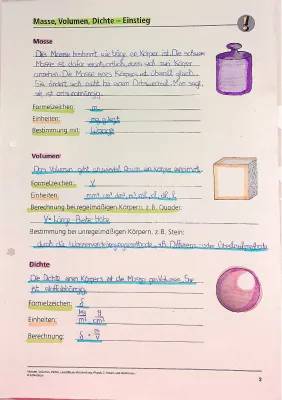 Masse, Volumen, Dichte – Einstieg
Masse
Die Masse bestimmt wie träge ein Körper ist. Die schwere
Masse ist dafür verantwortlich, dass sich zwei Körper
anziehen. Die Masse eines Körpers ist überall gleich.
Sie ändert sich nicht bei einem Ortswechsel. Man sagt,
sie ist ortsunabhängig.
Formelzeichen: m
Einheiten: mg, g, kg, t
Bestimmung mit: Waage
Volumen
Das Volumen gibt an, wieviel Raum ein Körper einnimmt.
Formelzeichen: V
Einheiten:
Berechnung bei regelmäßigen Körpern, z.B. Quader:
V = Länge · Breite · Höhe
Bestimmung bei unregelmäßigen Körpern, z.B. Stein:
durch die Wasserverdrängungsmethode, z.B. Differenz- oder Überlaufmethode
Dichte
Die Dichte eines Körpers ist die Masse pro Volumen. Sie
ist stoffabhängig.
Formelzeichen:
Einheiten: kg/m³ g/cm³
Berechnung: